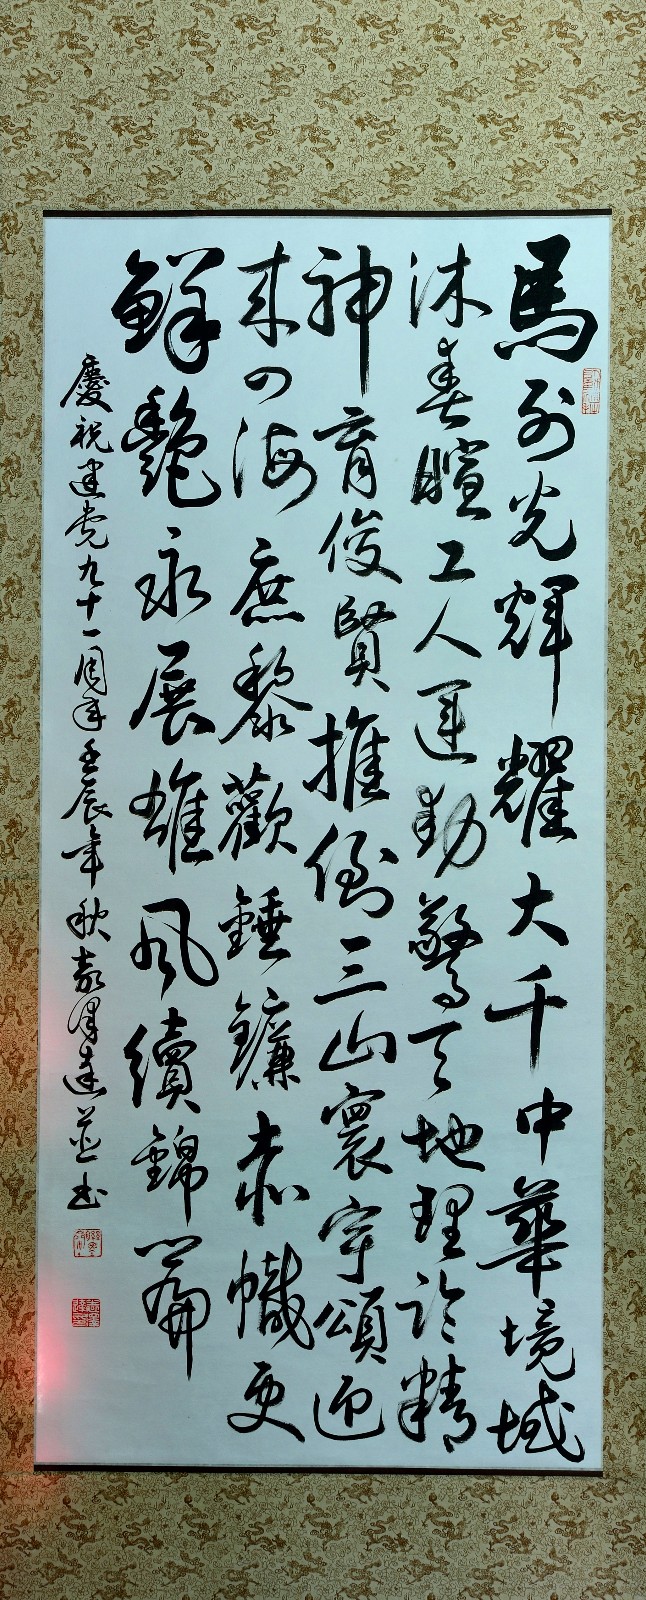 馬列光輝耀大千中華境域
沐春暄工人運動驚天地理論精
神育俊賢推倒三山寰宇頌迎
來四海庶黎歡錘鐮赤幟更
鮮艷永展雄風續錦篇
慶祝建党九十一周年壬辰年秋袁澤遠並书